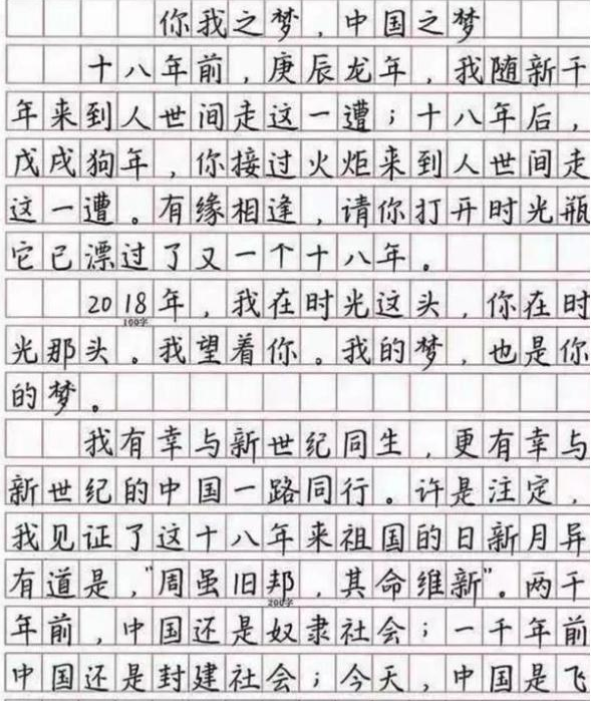 你我之梦，中国之梦
十八年前，庚辰龙年，我随新千
年来到人世间走这一遭；十八年后，
戊戌狗年，你接过火炬来到人世间走
这一遭。有缘相逢，请你打开时光瓶
它已漂过了又一个十八年。
2018年，我在时光这头，你在时
100字
光那头。我望着你。我的梦，也是你
的梦。
我有幸与新世纪同生，更有幸与
新世纪的中国一路同行。许是注定，
我见证了这十八年来祖国的日新月异
有道是，"周虽旧邦，其命维新"。两千
200字
年前，中国还是奴隶社会；一千年前
中国还是封建社会；今天，中国是飞